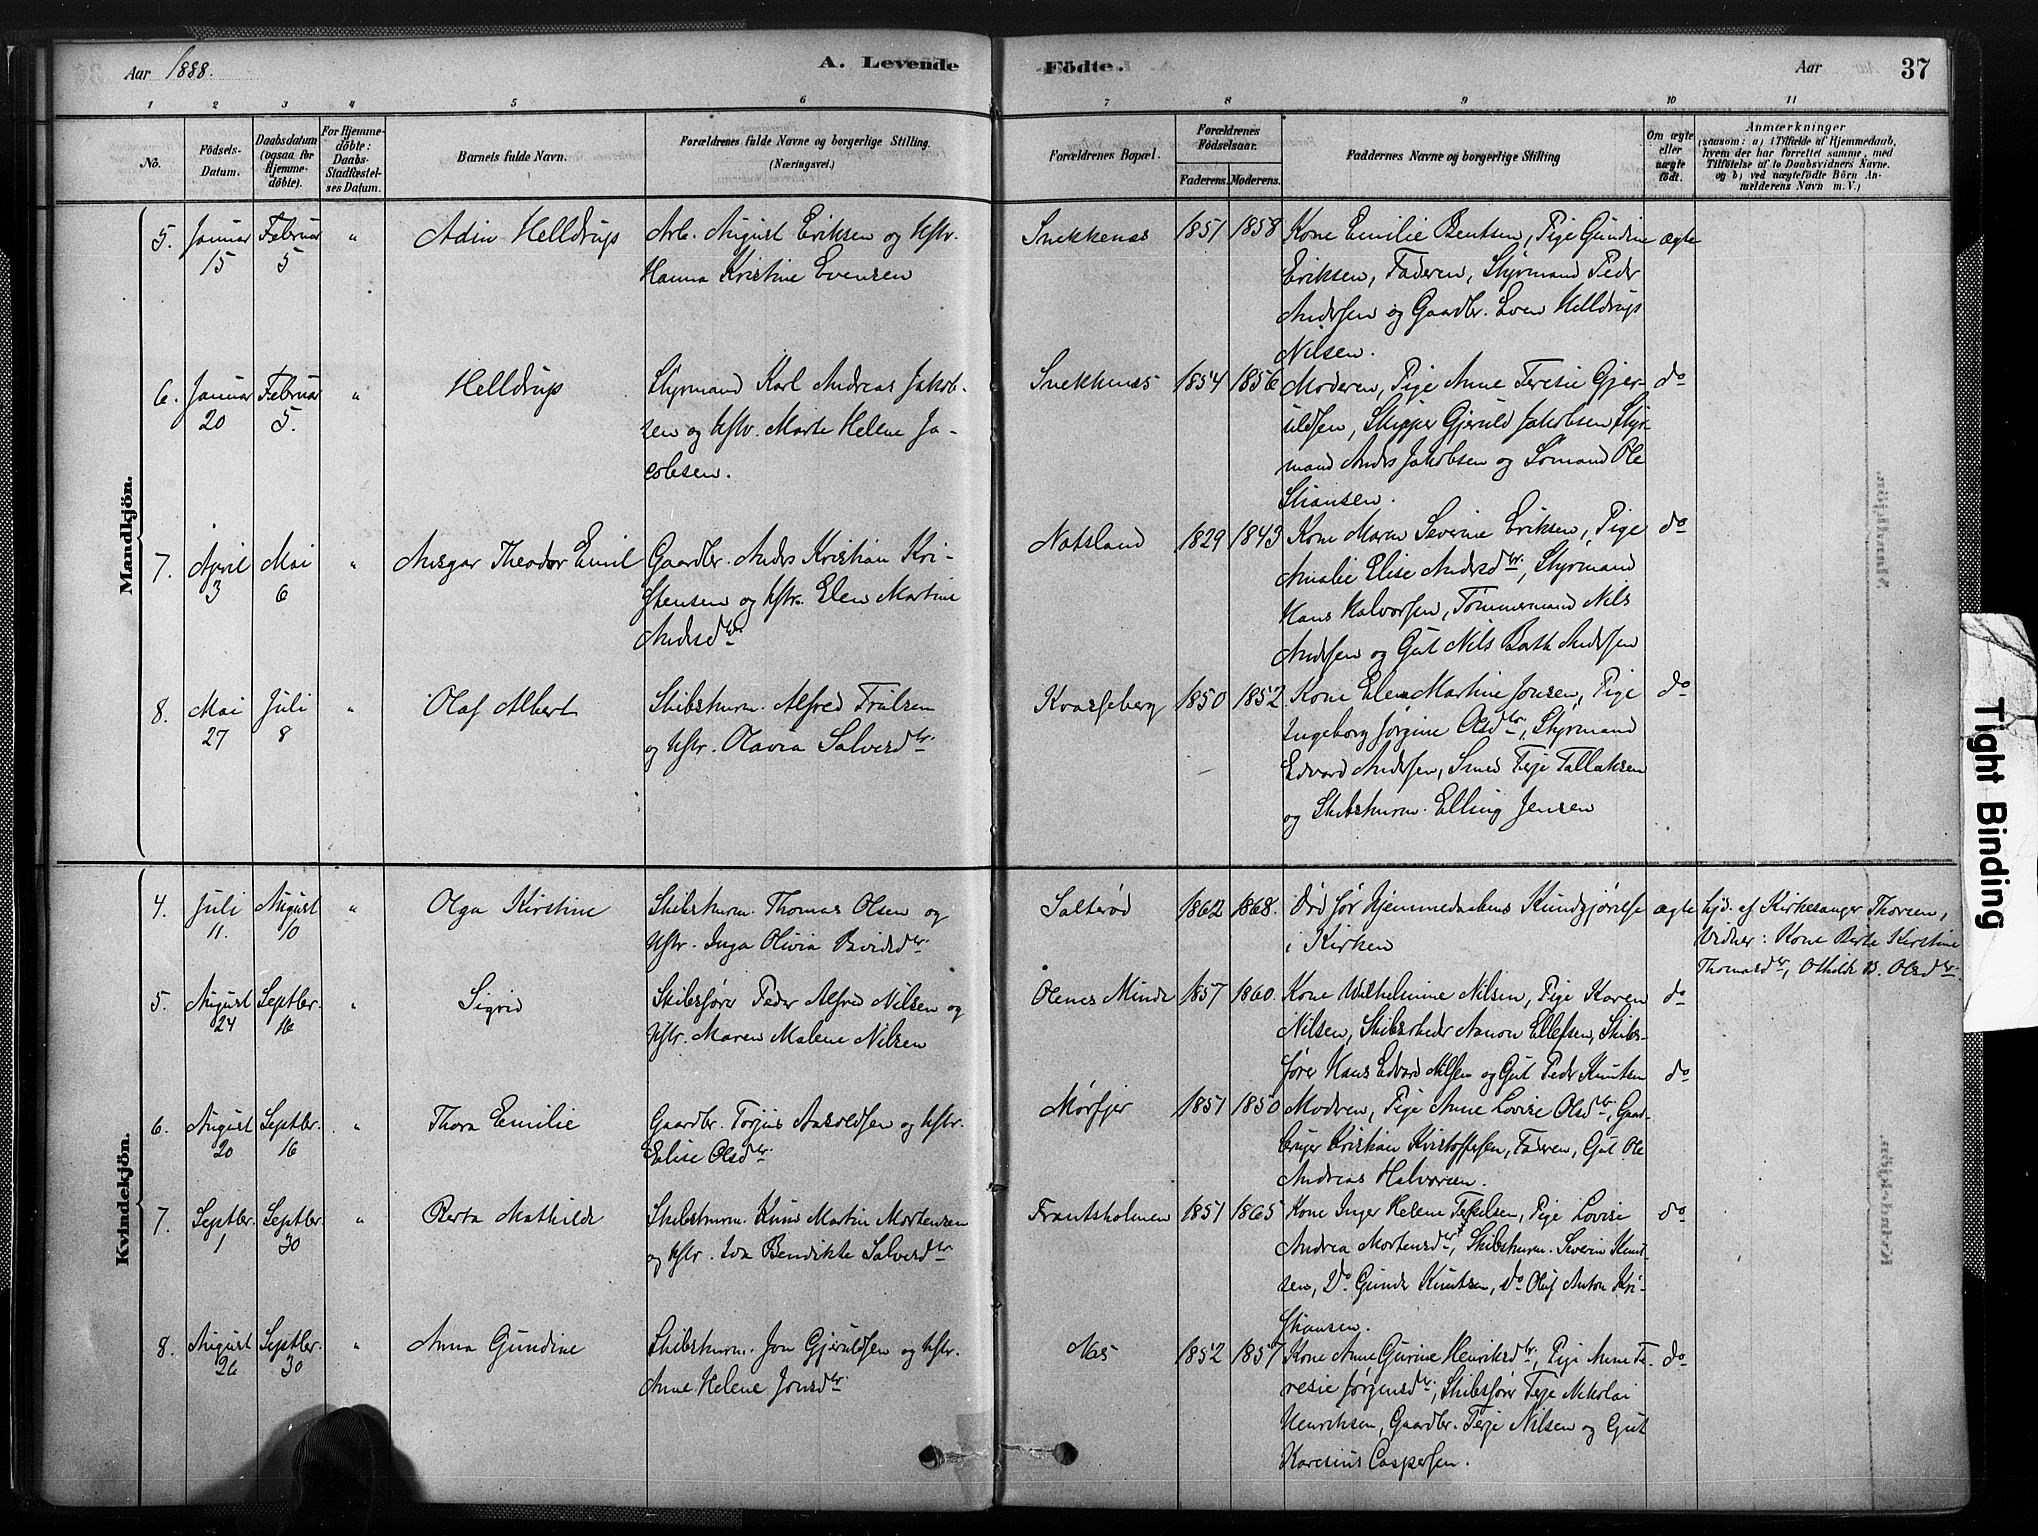 Aar 1888.
A. Levende Födte.
Aar 37
1 2 3 4 5 6 7 8 9 10 11
No.
Födsels-Datum.
Daabsdatum (ogsaa for Hjemme-döbte).
For Hjemme-döbte: Daabs-Stadfæstel-ses Datum.
Barnets fulde Navn.
Forældrenes fulde Navne og borgerlige Stilling. (Næringsvei.)
Forældrenes Bopæl.
Forældrenes Födselsaar.
Faderens. Moderens.
Faddernes Navne og borgerlige Stilling
Om ægte eller uægte födt.
Anmærkninger
(saasom: a) i Tilfælde af Hjemmedaab,
hvem der har forrettet samme, med
Tilföielse af to Daabsvidners Navne.
og b) ved uægtefödte Börn An-
melderens Navn m. V.)
Mandkjön.
5. Januar 15 Februar 5 " Adin Helldrup
Arb. August Eriksen og Hstr.
Hanna Kristine Evensen
Snekkenæs 1851 1858
Kone Emilie Bentsen, Pige Gundine ægte
Eriksen, Faderen, Styrmand Peder
Andersen og Gaardbr. Even Helldrup
Nilsen.
6. Januar 20 Februar 5. " Helldrup
Styrmand Karl Andreas Jakob-
sen og Hstr. Marte Helene Ja-
cobsen.
Snekkenæs 1854 1856
Moderen, Pige Anne Teresie Gjer- do
uldsen, Skipper Gjeruld Jakobsen, Styr-
mand Anders Jakobsen og Sømand Ole
Stiansen.
7. April 3 Mai 6 " Ansgar Theodor Emil
Gaardbr. Anders Kristian Kri-
stensen og Hstr. Elen Martine
Andersdtr.
Natsland 1829 1843
Kone Maren Severine Eriksen, Pige do
Amalie Elise Andersdtr., Styrmand
Hans Halvorsen, Tømmermand Nils
Andersen og Gut Nils Barth Andersen
8. Mai 27 Juli 8 " Olaf Albert
Skibsturm. Alfred Trulsen
og Hstr. Olavia Salvesdtr.
Kvasseberg 1850 1852
Kone Elen Martine Jonsen, Pige do
Ingeborg Jørgine Olsdtr., Styrmand
Edvard Andersen, Smed Terje Tallaksen
og Skibsturm. Elling Jensen
Kvindekjön.
4. Juli 11. August 10 " Olga Kirstine
Skibsturm. Thomas Olsen og
Hstr. Inga Olivia
Salterød 1862 1868.
Død før Hjemmedaabens Kundgjørelse ægte
i Kirken
Hjd. af Kirkesanger Thorsen,
Vidner: Kone Birte Kirstine
Thomasdtr., Othilde B. Olsdtr.
5. August 24 Septbr. 16 " Sigrid
Skibsfører Peder Alfred Nilsen og
Hstr. Maren Malene Nilsen
Olenes Minde 1857 1860.
Kone Wilhelmine Nilsen, Pige Karen do
Nilsen, Skibsreder Aanon Ellefsen, Skibs-
fører Hans Edvard Nilsen og Gut Peder Knutsen
6. August 20 Septbr. 16 " Thora Emilie
Gaardbr. Torjus Aasoldsen og Hstr.
Elise Olsdtr.
Mørfjer 1851 1850 do
Modren, Pige Anne Lovise Olsdtr., Gaard-
bruger Kristian Kristoffersen, Faderen, Gut Ole
Andreas Halvorsen.
7. Septbr. 1 Septbr. 30 " Berta Mathilde
Skibsturm. Knud Martin Mortensen
og Hstr. Ida Bendikte Salvesdtr.
Frantsholmen 1851 1865
Kone Inger Helene Terjelsen, Pige Lovise do
Andrea Mortensdtr., Skibsturm. Severin Knut-
sen, Do Gunder Knutsen, do Oluf Anton Kri-
stiansen.
8. August 26 Septbr. 30 " Anna Gundine
Skibsturm. Jon Gjeruldsen og Hstr.
Anne Helene Jonsdtr.
Næs 1852 1857
Kone Anne Gurine Henriksdtr., Pige Anne Te- do
resie Jørgensdtr., Skibsfører Terje Nikolai
Henriksen, Gaardbr. Terje Nilsen og Gut
Karenius Caspersen.
Tight Binding